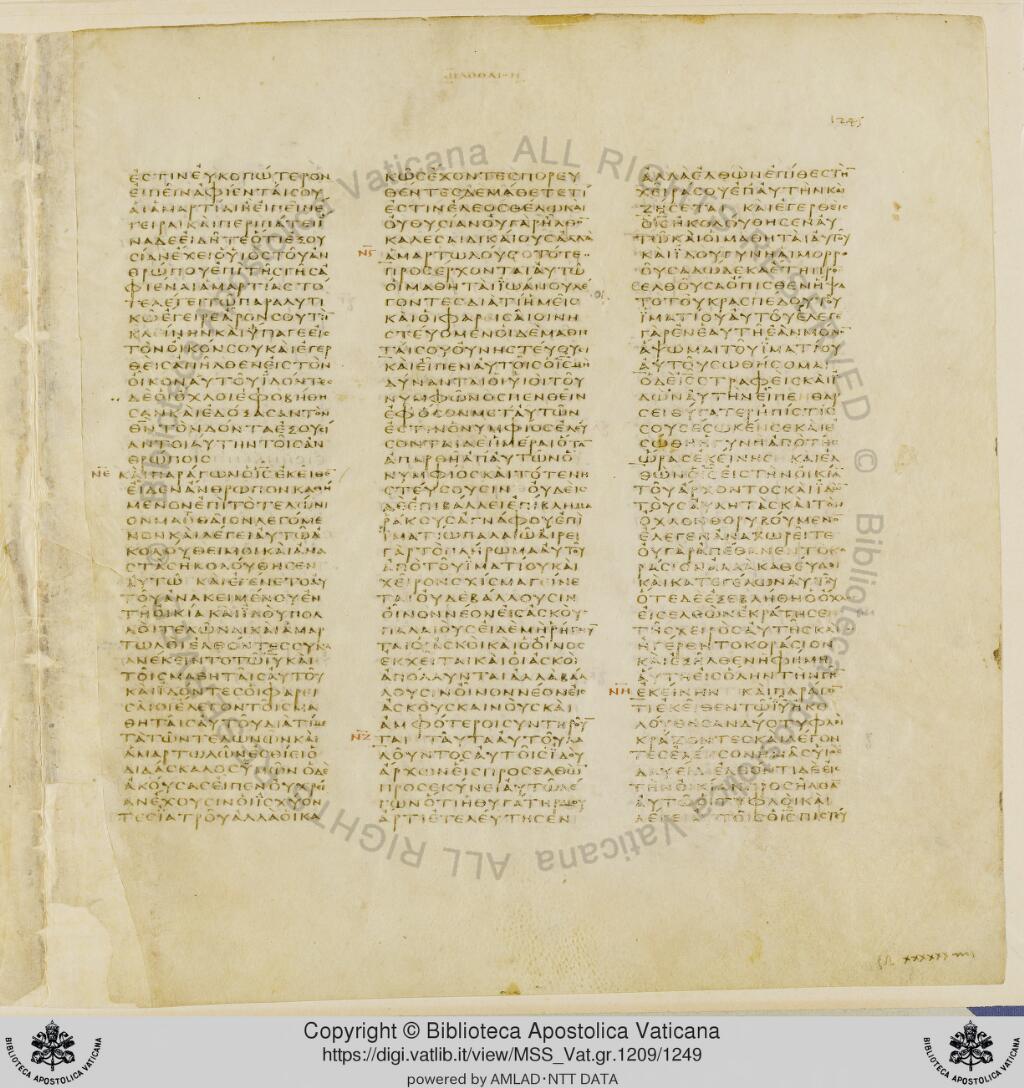 ΜΑΘΘΑΙΟΝ
1245
ΕϹΤΙΝΕΥΚΟΠΩΤΕΡΟΝ
ΕΙΠΕΙΝΑΦΙΕΝΤΑΙϹΟΥ
ΑΙΑΜΑΡΤΙΑΙΗΕΙΠΕΙΝΕ
ΓΕΙΡΑΙΚΑΙΠΕΡΙΠΑΤΕΙΪ
ΝΑΔΕΕΙΔΗΤΕΟΤΙΕΞΟΥ
ϹΙΑΝΕΧΕΙΟΥΙΟϹΤΟΥΑΝ
ΘΡΩΠΟΥΕΠΙΤΗϹΓΗϹΑ
ΦΙΕΝΑΙΑΜΑΡΤΙΑϹΤΟ
ΤΕΛΕΓΕΙΤΩΠΑΡΑΛΥΤΙ
ΚΩΕΓΕΙΡΕΑΡΟΝϹΟΥΤΗ
ΚΛΕΙΝΗΝΚΑΙΥΠΑΓΕΕΙϹ
ΤΟΝΟΙΚΟΝϹΟΥΚΑΙΕΓΕΡ
ΘΕΙϹΑΠΗΛΘΕΝΕΙϹΤΟΝ
ΟΙΚΟΝΑΥΤΟΥΪΔΟΝΤΕϹ
ΔΕΟΙΟΧΛΟΙΕΦΟΒΗΘΗ
ϹΑΝΚΑΙΕΔΟΞΑϹΑΝΤΟΝ
ΘΝΤΟΝΔΟΝΤΑΕΞΟΥϹΙ
ΑΝΤΟΙΑΥΤΗΝΤΟΙϹΑΝ
ΘΡΩΠΟΙϹ
ΝΕ ΚΑΙΠΑΡΑΓΩΝΟΙϹΕΚΕΙΘΕ
ΕΙΔΕΝΑΝΘΡΩΠΟΝΚΑΘΗ
ΜΕΝΟΝΕΠΙΤΟΤΕΛΩΝΙ
ΟΝΜΑΘΘΑΙΟΝΛΕΓΟΜΕ
ΝΟΝΚΑΙΛΕΓΕΙΑΥΤΩΑ
ΚΟΛΟΥΘΕΙΜΟΙΚΑΙΑΝΑ
ϹΤΑϹΗΚΟΛΟΥΘΗϹΕΝ
ΑΥΤΩ ΚΑΙΕΓΕΝΕΤΟΑΥ
ΤΟΥΑΝΑΚΕΙΜΕΝΟΥΕΝ
ΤΗΟΙΚΙΑΚΑΙΪΔΟΥΠΟΛ
ΛΟΙΤΕΛΩΝΑΙΚΑΙΑΜΑΡ
ΤΩΛΟΙΕΛΘΟΝΤΕϹϹΥΝΑ
ΝΕΚΕΙΝΤΟΤΩΙΥΚΑΙ
ΤΟΙϹΜΑΘΗΤΑΙϹΑΥΤΟΥ
ΚΑΙΪΔΟΝΤΕϹΟΙΦΑΡΕΙ
ϹΑΙΟΙΕΛΕΓΟΝΤΟΙϹΜΑ
ΘΗΤΑΙϹΑΥΤΟΥΔΙΑΤΙΜΕ
ΤΑΤΩΝΤΕΛΩΝΩΝΚΑΙ
ΑΜΑΡΤΩΛΩΝΕϹΘΙΕΙΟ
ΔΙΔΑϹΚΑΛΟϹΥΜΩΝΟΔΕ
ΑΚΟΥϹΑϹΕΙΠΕΝΟΥΧΡΕΙ
ΑΝΕΧΟΥϹΙΝΟΙΙϹΧΥΟΝ
ΤΕϹΪΑΤΡΟΥΑΛΛΑΟΙΚΑ
ΚΩϹΕΧΟΝΤΕϹΠΟΡΕΥ
ΘΕΝΤΕϹΔΕΜΑΘΕΤΕΤΙ
ΕϹΤΙΝΕΛΕΟϹΘΕΛΩΚΑΙ
ΟΥΘΥϹΙΑΝΟΥΓΑΡΗΛΘΟ
ΚΑΛΕϹΑΙΔΙΚΑΙΟΥϹΑΛΛΑ
ΝϚ ΑΜΑΡΤΩΛΟΥϹ ΤΟΤΕ
ΠΡΟϹΕΡΧΟΝΤΑΙΑΥΤΩ
ΟΙΜΑΘΗΤΑΙΪΩΑΝΟΥΛΕ
ΓΟΝΤΕϹΔΙΑΤΙΗΜΕΙϹ
ΚΑΙΟΙΦΑΡΕΙϹΑΙΟΙΝΗ
ϹΤΕΥΟΜΕΝΟΙΔΕΜΑΘΗ
ΤΑΙϹΟΥΟΥΝΗϹΤΕΥΟΥϹΙ
ΚΑΙΕΙΠΕΝΑΥΤΟΙϹΟΙϹΜΗ
ΔΥΝΑΝΤΑΙΟΙΥΙΟΙΤΟΥ
ΝΥΜΦΩΝΟϹΠΕΝΘΕΙΝ
ΕΦΟϹΟΝΜΕΤΑΥΤΩΝ
ΕϹΤΙΝΟΝΥΜΦΙΟϹΕΛΕΥ
ϹΟΝΤΑΙΔΕΗΜΕΡΑΙΟΤΑ
ΑΠΑΡΘΗΑΠΑΥΤΩΝΟ
ΝΥΜΦΙΟϹΚΑΙΤΟΤΕΝΗ
ϹΤΕΥϹΟΥϹΙΝ ΟΥΔΕΙϹ
ΔΕΕΠΙΒΑΛΛΕΙΕΠΙΒΛΗΜΑ
ΡΑΚΟΥϹΑΓΝΑΦΟΥΕΠΙ
ΪΜΑΤΙΩΠΑΛΑΙΩΑΙΡΕΙ
ΓΑΡΤΟΠΛΗΡΩΜΑΑΥΤΟΥ
ΑΠΟΤΟΥΪΜΑΤΙΟΥΚΑΙ
ΧΕΙΡΟΝϹΧΙϹΜΑΓΕΙΝΕ
ΤΑΙΟΥΔΕΒΑΛΛΟΥϹΙΝ
ΟΙΝΟΝΝΕΟΝΕΙϹΑϹΚΟΥϹ
ΠΑΛΑΙΟΥϹΕΙΔΕΜΗΡΗΓΝΥ
ΤΑΙΟΙΑϹΚΟΙΚΑΙΟΟΙΝΟϹ
ΕΚΧΕΙΤΑΙΚΑΙΟΙΑϹΚΟΙ
ΑΠΟΛΛΥΝΤΑΙΑΛΛΑΒΑΛ
ΛΟΥϹΙΝΟΙΝΟΝΝΕΟΝΕΙϹ
ΑϹΚΟΥϹΚΑΙΝΟΥϹΚΑΙ
ΑΜΦΟΤΕΡΟΙϹΥΝΤΗΡΟΥ
ΝΖ ΤΑΙ ΤΑΥΤΑΑΥΤΟΥΛΑ
ΛΟΥΝΤΟϹΑΥΤΟΙϹΪΔΟΥ
ΑΡΧΩΝΕΙϹΠΡΟϹΕΛΘΩ
ΠΡΟϹΕΚΥΝΕΙΑΥΤΩΛΕ
ΓΩΝΟΤΙΗΘΥΓΑΤΗΡΜΟΥ
ΑΡΤΙΕΤΕΛΕΥΤΗϹΕΝ
ΑΛΛΑΕΛΘΩΝΕΠΙΘΕϹΤΗ
ΧΕΙΡΑϹΟΥΕΠΑΥΤΗΝΚΑΙ
ΖΗϹΕΤΑΙ ΚΑΙΕΓΕΡΘΕΙϹ
ΟΙϹΗΚΟΛΟΥΘΗϹΕΝΑΥ
ΤΩΚΑΙΟΙΜΑΘΗΤΑΙΑΥΤΟΥ
ΚΑΙΪΔΟΥΓΥΝΗΑΙΜΟΡΡΟ
ΟΥϹΑΔΩΔΕΚΑΕΤΗΠΡΟ
ϹΕΛΘΟΥϹΑΟΠΙϹΘΕΝΗΨΑ
ΤΟΤΟΥΚΡΑϹΠΕΔΟΥΤΟΥ
ΪΜΑΤΙΟΥΑΥΤΟΥΕΛΕΓΕ
ΓΑΡΕΝΕΑΥΤΗΕΑΝΜΟΝΟ
ΑΨΩΜΑΙΤΟΥΪΜΑΤΙΟΥ
ΑΥΤΟΥϹΩΘΗϹΟΜΑΙ
ΟΔΕΙϹϹΤΡΑΦΕΙϹΚΑΙΪ
ΔΩΝΑΥΤΗΝΕΙΠΕΝΘΑΡ
ϹΕΙΘΥΓΑΤΕΡΗΠΙϹΤΙϹ
ϹΟΥϹΕϹΩΚΕΝϹΕΚΑΙΕ
ϹΩΘΗΗΓΥΝΗΑΠΟΤΗϹ
ΩΡΑϹΕΚΕΙΝΗϹ ΚΑΙΕΛ
ΘΩΝΟΙϹΕΙϹΤΗΝΟΙΚΙΑ
ΤΟΥΑΡΧΟΝΤΟϹΚΑΙΪΔΩ
ΤΟΥϹΑΥΛΗΤΑϹΚΑΙΤΟΝ
ΟΧΛΟΝΘΟΡΥΒΟΥΜΕΝΟ
ΕΛΕΓΕΝΑΝΑΧΩΡΕΙΤΕ
ΟΥΓΑΡΑΠΕΘΑΝΕΝΤΟΚΟ
ΡΑϹΙΟΝΑΛΛΑΚΑΘΕΥΔΕΙ
ΚΑΙΚΑΤΕΓΕΛΩΝΑΥΤΟΥ
ΟΤΕΔΕΕΞΕΒΛΗΘΗΟΟΧΛΟ
ΕΙϹΕΛΘΩΝΕΚΡΑΤΗϹΕ
ΤΗϹΧΕΙΡΟϹΑΥΤΗϹΚΑΙ
ΗΓΕΡΘΗΤΟΚΟΡΑϹΙΟΝ
ΚΑΙΕΞΗΛΘΕΝΗΦΗΜΗ
ΑΥΤΗΕΙϹΟΛΗΝΤΗΝΓΗ
ΝΗ ΕΚΕΙΝΗΝ ΚΑΙΠΑΡΑΓΟ
ΤΙΕΚΕΙΘΕΝΤΩΙΥΗΚΟ
ΛΟΥΘΗϹΑΝΔΥΟΤΥΦΛΟΙ
ΚΡΑΖΟΝΤΕϹΚΑΙΛΕΓΟΝ
ΤΕϹΕΛΕΗϹΟΝΗΜΑϹΥΙΕ
ΔΑΥΕΙΔ ΕΛΘΟΝΤΙΔΕΕΙϹ
ΤΗΝΟΙΚΙΑΝΠΡΟϹΗΛΘΟΝ
ΑΥΤΩΟΙΤΥΦΛΟΙΚΑΙ
ΛΕΓΕΙΑΥΤΟΙϹΟΙϹΠΙϹΤΕΥ
Copyright © Biblioteca Apostolica Vaticana
https://digi.vatlib.it/view/MSS_Vat.gr.1209/1249
powered by AMLAD・NTT DATA
BIBLIOTECA APOSTOLICA VATICANA
BIBLIOTECA APOSTOLICA VATICANA